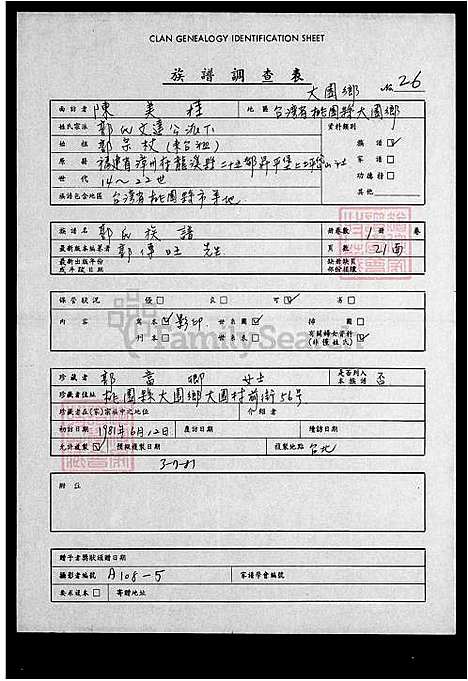 CLAN GENEALOGY IDENTIFICATION SHEET
族譜調查表
大園鄉 No 26
面訪者 陳美桂 地區 台灣省桃園縣大園鄉
姓氏宗派 郭氏文達公派下 資料類別
始祖 郭宗枚(來台祖) 族譜 ☑
原籍 福建省漳州府龍溪縣二十五都昇平堡 家訓 □
世代 14~22世 功德榜 □
族譜包含地區 台灣省桃園縣市等地 其他
族譜名 郭氏族譜 冊卷數 1冊 卷
最新版本編著者 郭傳旺 先生 頁數 21面
最新出版年份或手跋日期 缺冊缺頁部份程標
保管狀況 優□ 良□ 可☑ 劣□
內容 寫本☑影印 世系圖☑ 排圖□
刊本□ 世系表□ 有關婦女資料(非僅姓氏)☑
珍藏者 郭 卿 女士 是否列入本族譜 否
珍藏者住址 桃園縣大園鄉大園村前街56号
珍藏者在(家)宗族中之地位 介紹者
初訪日期 1981年6月12日 復訪日期 續訪日期
允許複製☑ 預擬複製日期 複製地點 台北
3-7-81
附註
贈予者獎狀頒贈日期
攝影者編號 A108-5 家譜學會編號
要求複本□ 寄贈地址
FamilySearch